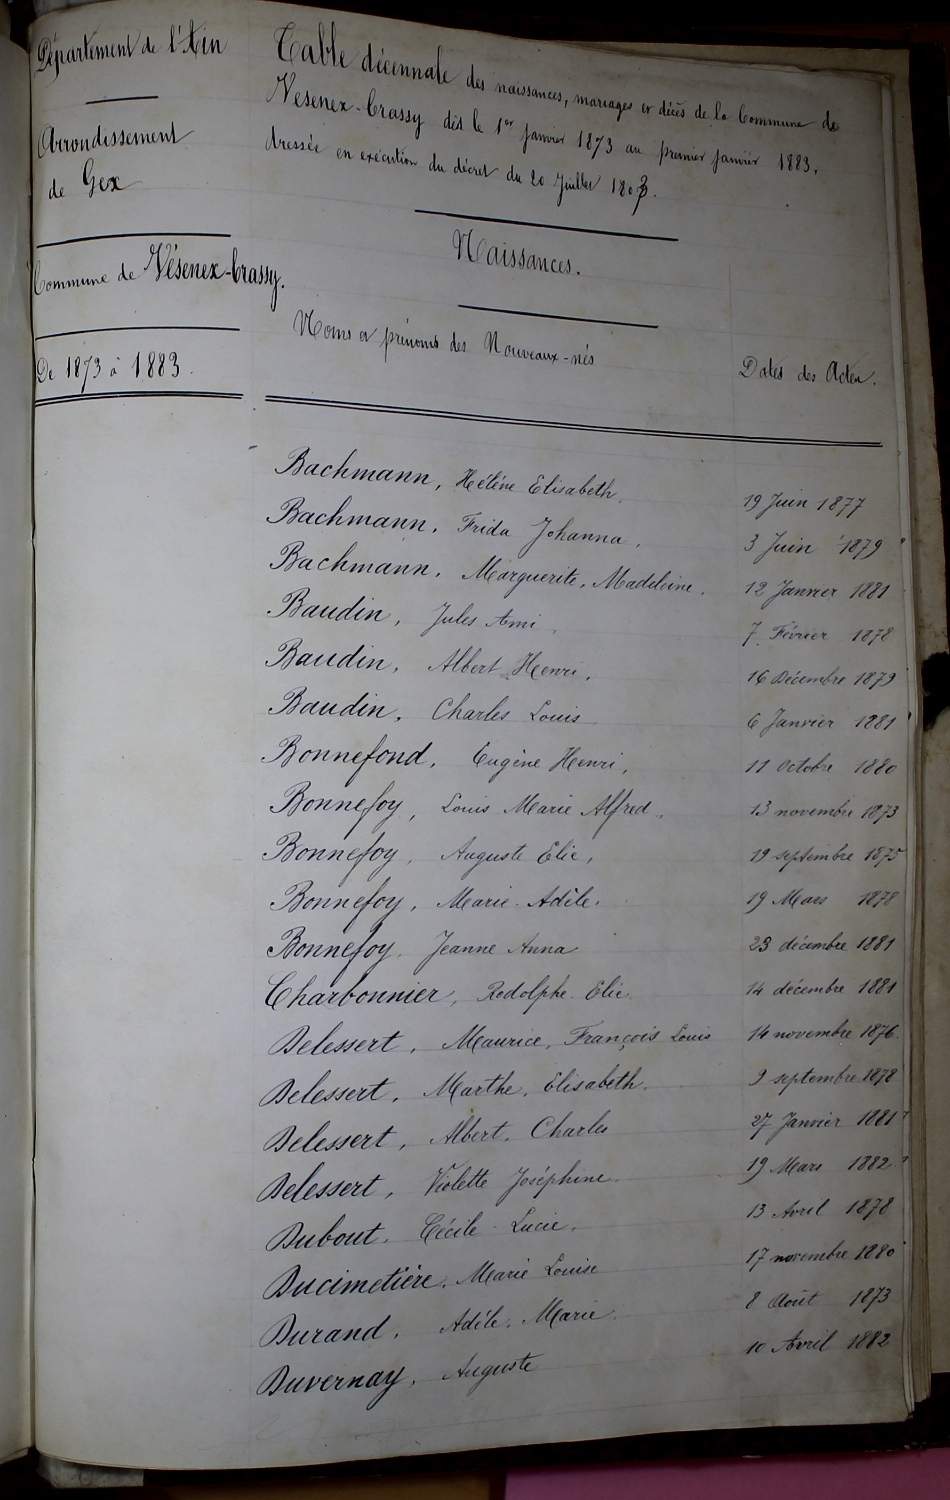 Département de l'Ain
Arrondissement
de Gex
Commune de Vésenex-Crassy.
De 1873 à 1883.
Table décennale des naissances, mariages et décès de la Commune de
Vesenex-Crassy dès le 1er Janvier 1873 au premier Janvier 1883,
dressée en exécution du décret du 20 Juillet 1807.
Naissances.
Noms et prénoms des Nouveaux-nés
Dates des Actes.
Bachmann, Hélène Elisabeth. 19 Juin 1877
Bachmann, Frida Johanna. 3 Juin 1879
Bachmann, Marguerite, Madeleine. 12 Janvier 1881
Baudin, Jules Ami. 7 Février 1878
Baudin, Albert Henri. 16 Décembre 1879
Baudin, Charles Louis 6 Janvier 1881
Bonnefond, Eugène Henri, 11 Octobre 1880
Bonnefoy, Louis Marie Alfred. 13 novembre 1873
Bonnefoy, Auguste Elie, 19 septembre 1875
Bonnefoy, Marie-Adèle. 19 Mars 1878
Bonnefoy. Jeanne Anna 23 décembre 1881
Charbonnier, Rodolphe Elie 14 décembre 1881
Delessert, Maurice, François Louis 14 novembre 1876.
Delessert, Marthe, Elisabeth. 9 septembre 1878
Delessert, Albert, Charles 27 Janvier 1881
Delessert, Violette Joséphine 19 Mars 1882
Dubout. Cécile-Lucie. 13 Avril 1878
Ducimetière. Marie Louise 17 novembre 1880
Durand, Adèle, Marie. 8 Août 1873
Duvernay, Auguste 10 Avril 1882